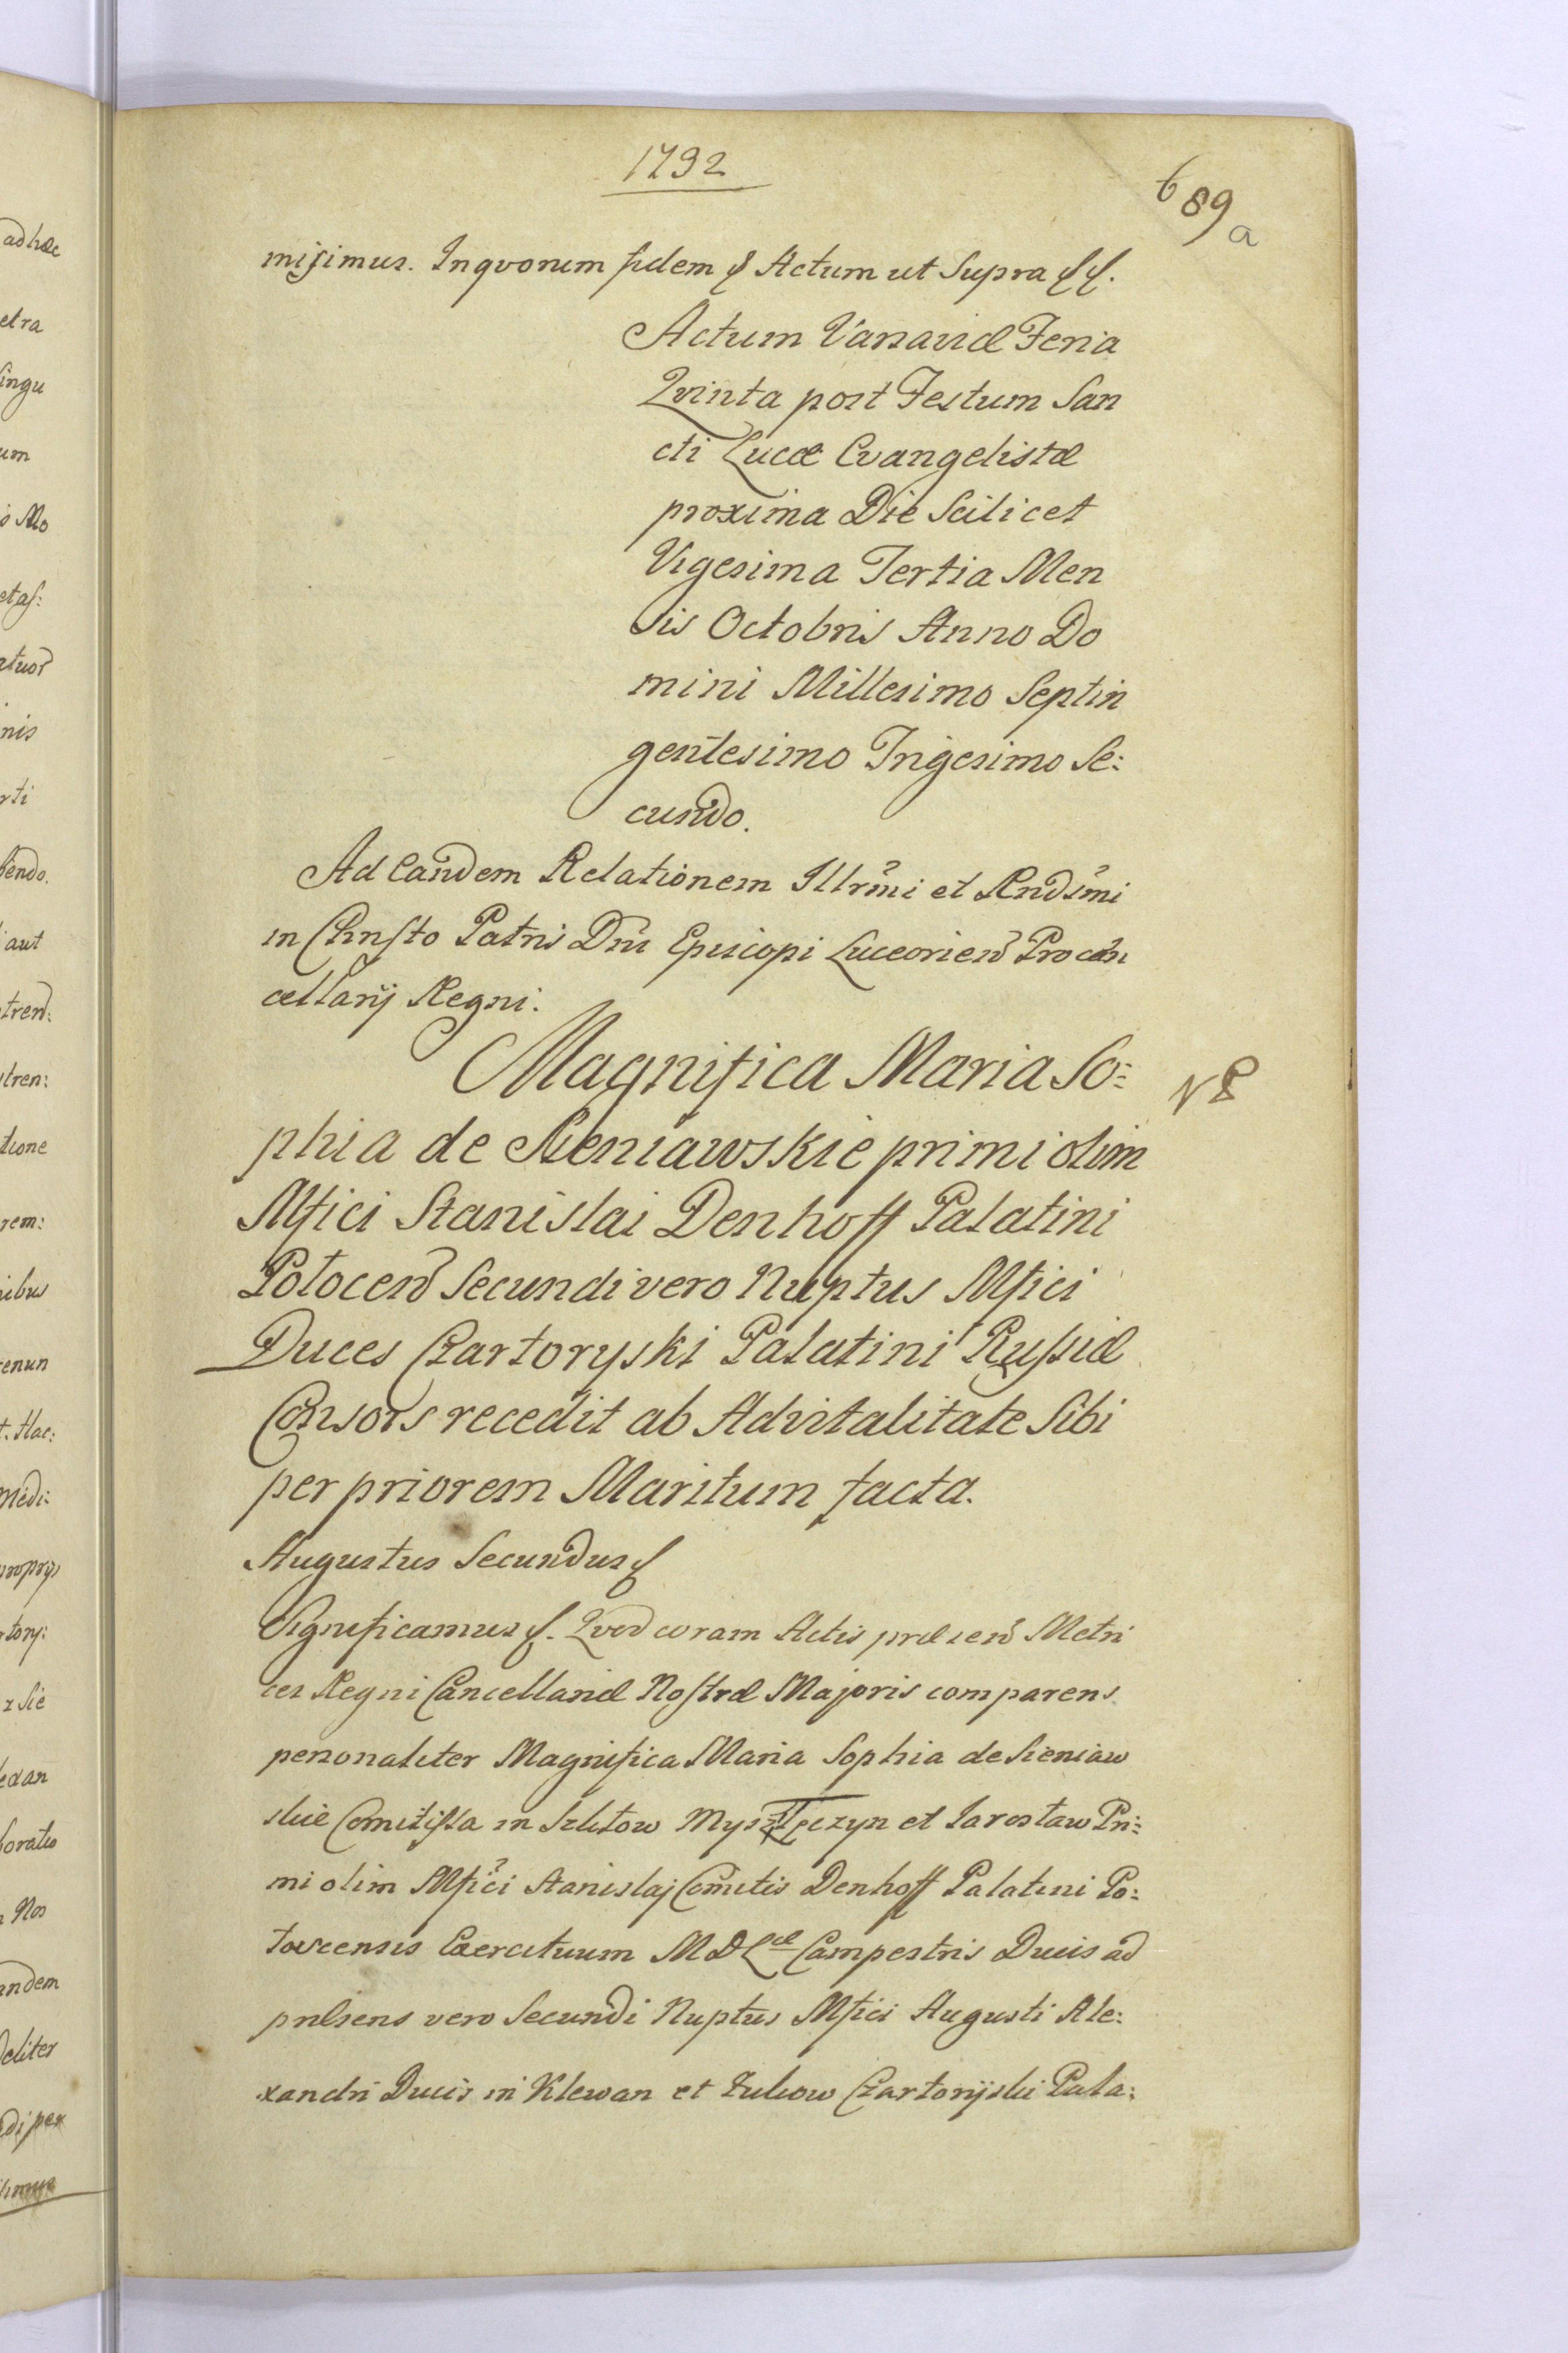 1732
689
a
misimus. In qvorum fidem & Actum ut Supra &&.
Actum Varsaviæ Feria
Qvinta post Festum San
cti Lucæ Evangelistæ
proxima Die Scilicet
Vigesima Tertia Men
sis Octobris Anno Do
mini Millesimo Septin
gentesimo Trigesimo Se:
cundo.
Ad Eandem Relationem Illrmi et Rndsmi
in Christo Patris Dni Episcopi Luceorien Procan
cellarij Regni.
Magnifica Maria So:
phia de Sieniawskie primi olim
Mfici Stanislai Denhoff Palatini
Polocen Secundi vero Nuptus Mfici
Duces Czartoryski Palatini Russiæ
Consors recedit ab Advitalitate Sibi
per priorem Maritum facta.
Augustus Secundus &
Significamus &. Qvod coram Actis præsen Metri
ces Regni Cancellariæ Nostræ Majoris comparens
personaliter Magnifica Maria Sophia de Sieniaw
skie Comitissa in Szklow Mysz Tęczyn et Jaroslaw Pri:
mi olim Mfici Stanislaj Comitis Denhoff Palatini Po:
locensis Exercituum MDLæ Campestris Ducis ad
prælsens vero Secundi Nuptus Mfici Augusti Ale:
xandri Ducis in Klewan et Zukow Czartoryski Pala: